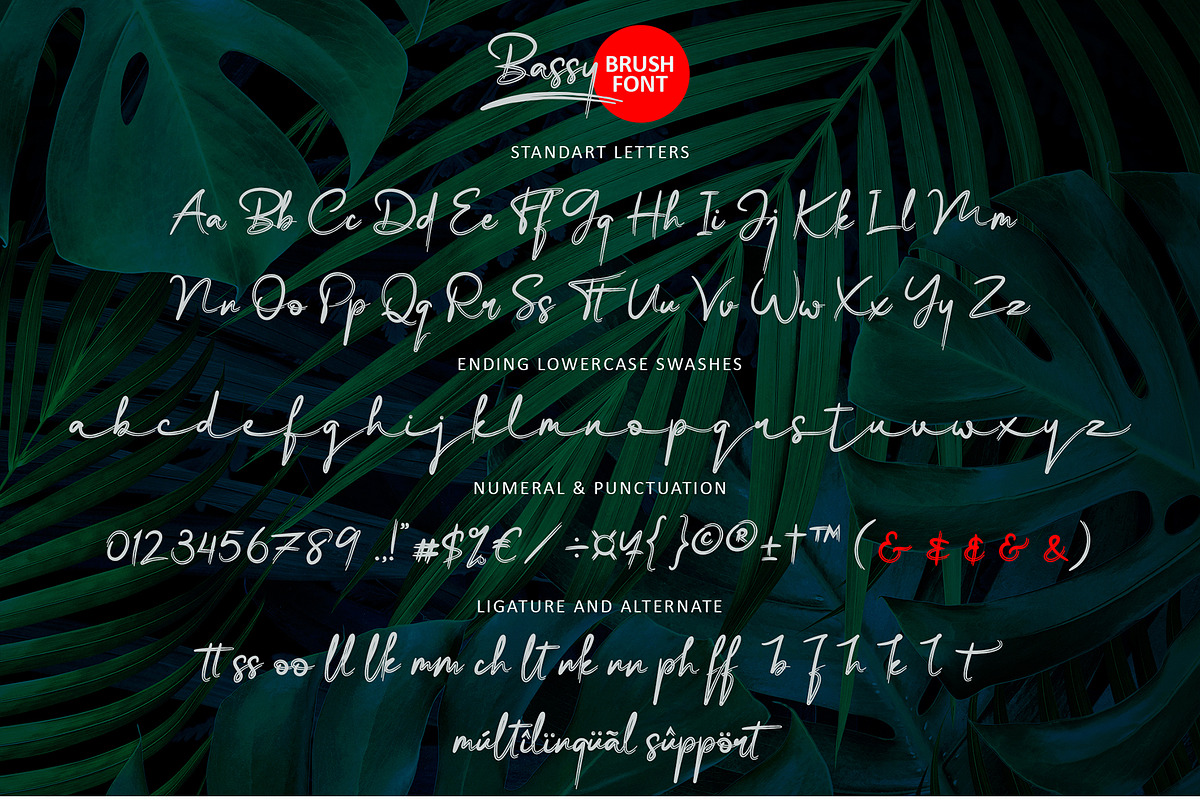 Bassy BRUSH FONT
STANDART LETTERS
Aa Bb Cc Dd Ee Ff Gg Hh Ii Jj Kk Ll Mm
Nn Oo Pp Qq Rr Ss Tt Uu Vv Ww Xx Yy Zz
ENDING LOWERCASE SWASHES
a b c d e f g h i j k l m n o p q r s t u v w x y z
NUMERAL & PUNCTUATION
0123456789 .,!" #$%€/÷¤¥{}©®±†™(& & & & &)
LIGATURE AND ALTERNATE
tt ss oo ll lk mm ch lt nk nn ph ff b f h k l t
múltîlïnqüãl sûppört